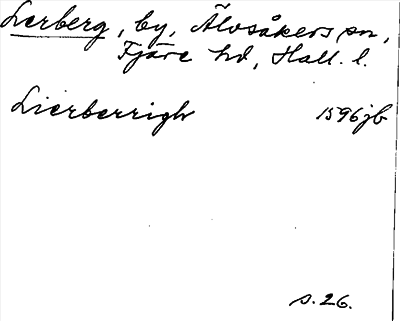 Lerberg, by, Älvsåkers sn,
Fjäre hd, Hall. l.
Lierberrigh 1596 jb
s. 26.